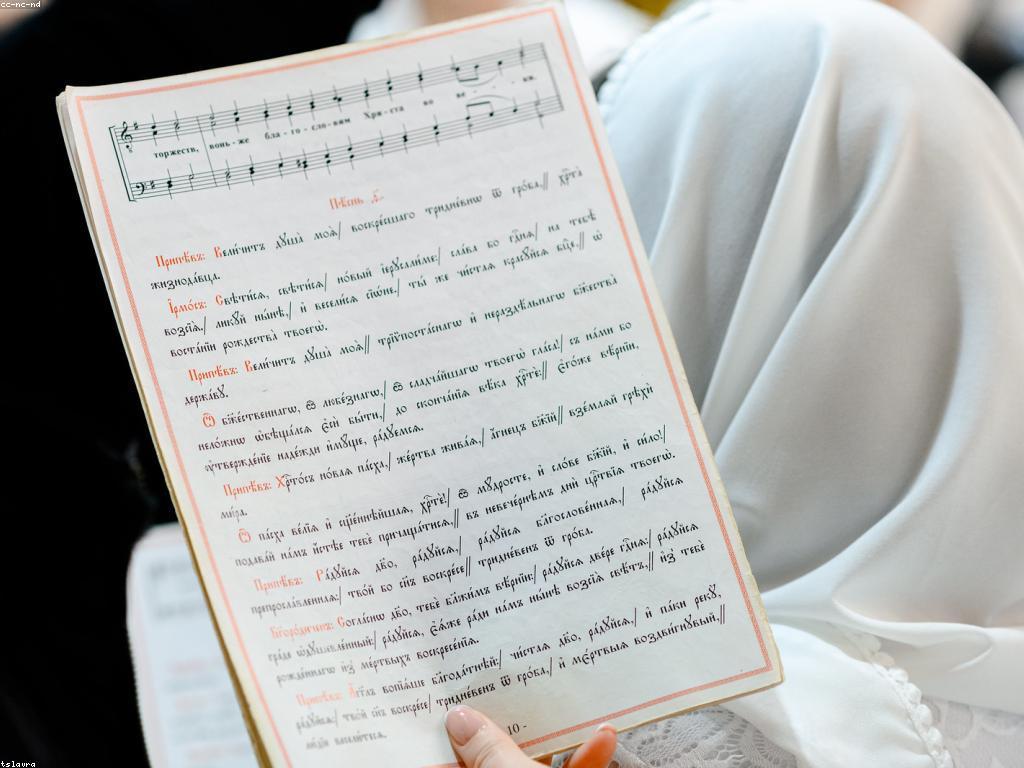 cc-nc-nd
торжеств, вонь-же бла-го-сло-вим Хри-ста во ве - - - ки.
Пѣснь
Припѣвъ: Вели́читъ дꙋша̀ моѧ̀/ воскре́сшаго тридне́внѡ ѿ гро́ба,// хрⷭ҇та̀
жизнода́вца.
І҆рмо́съ: Свѣти́сѧ, свѣти́сѧ/ но́вый і҆ерꙋсали́ме:/ сла́ва бо гдⷭ҇нѧ/ на тебѣ̀
возсїѧ̀,/ ликꙋ́й ны́нѣ,/ и҆ весели́сѧ сїѡ́не,/ ты́ же чⷭ҇таѧ красꙋ́йсѧ бцⷣе,// ѡ҆
воста́нїи рождества̀ твоегѡ̀.
Припѣвъ: Вели́читъ дꙋша̀ моѧ̀// трїѷпоста́снагѡ и҆ нераздѣ́льнагѡ бж҃ества̀
держа́вꙋ.
Ѽ бж҃е́ственнагѡ, ѽ любе́знагѡ,/ ѽ сладча́йшагѡ твоегѡ̀ гла́са!/ съ на́ми бо
нело́жнѡ ѡ҆бѣща́лсѧ є҆сѝ бы́ти,/ до сконча́нїѧ вѣ́ка хрⷭ҇тѐ:// є҆го́же вѣ́рнїи,
ᲂу҆твержде́нїе наде́жди и҆мꙋ́ще, ра́дꙋемсѧ.
Припѣвъ: Хрⷭ҇то́съ но́ваѧ па́сха,/ же́ртва жива́ѧ,/ а҆́гнецъ бж҃їй// взе́млѧй грѣхѝ
мі́ра.
Ѽ па́сха ве́лїѧ и҆ сщ҃е́ннѣйшаѧ, хрⷭ҇тѐ!/ ѽ мꙋ́дросте, и҆ сло́ве бж҃їй, и҆ си́ло!/
подава́й на́мъ и҆́стѣе тебѐ причаща́тисѧ,// въ невече́рнѣмъ днѝ црⷭ҇твїѧ твоегѡ̀.
Припѣвъ: Ра́дꙋйсѧ дв҃о, ра́дꙋйсѧ,/ ра́дꙋйсѧ бл҃гослове́ннаѧ,/ ра́дꙋйсѧ
препросла́вленнаѧ:/ тво́й бо сн҃ъ воскре́се// тридне́венъ ѿ гро́ба.
Бг҃оро́диченъ: Согла́снѡ дв҃о, тебѐ бл҃жи́мъ вѣ́рнїи:/ ра́дꙋйсѧ две́ре гдⷭ҇нѧ,/ ра́дꙋйсѧ
гра́де ѡ҆дꙋшевле́нный:/ ра́дꙋйсѧ, є҆ѧ́же ра́ди на́мъ ны́нѣ возсїѧ̀ свѣ́тъ,// и҆з̾ тебѐ
рожде́ннагѡ и҆з̾ ме́ртвыхъ воскресе́нїѧ.
Припѣвъ: А҆́гг҃лъ вопїѧ́ше бл҃года́тнѣй:/ чⷭ҇таѧ дв҃о, ра́дꙋйсѧ,/ и҆ па́ки рекꙋ̀,
ра́дꙋйсѧ:/ тво́й сн҃ъ воскре́се/ тридне́венъ ѿ гро́ба,/ и҆ ме́ртвыѧ воздви́гнꙋвый,//
лю́дїе весели́тесѧ.
10 -
tslavra